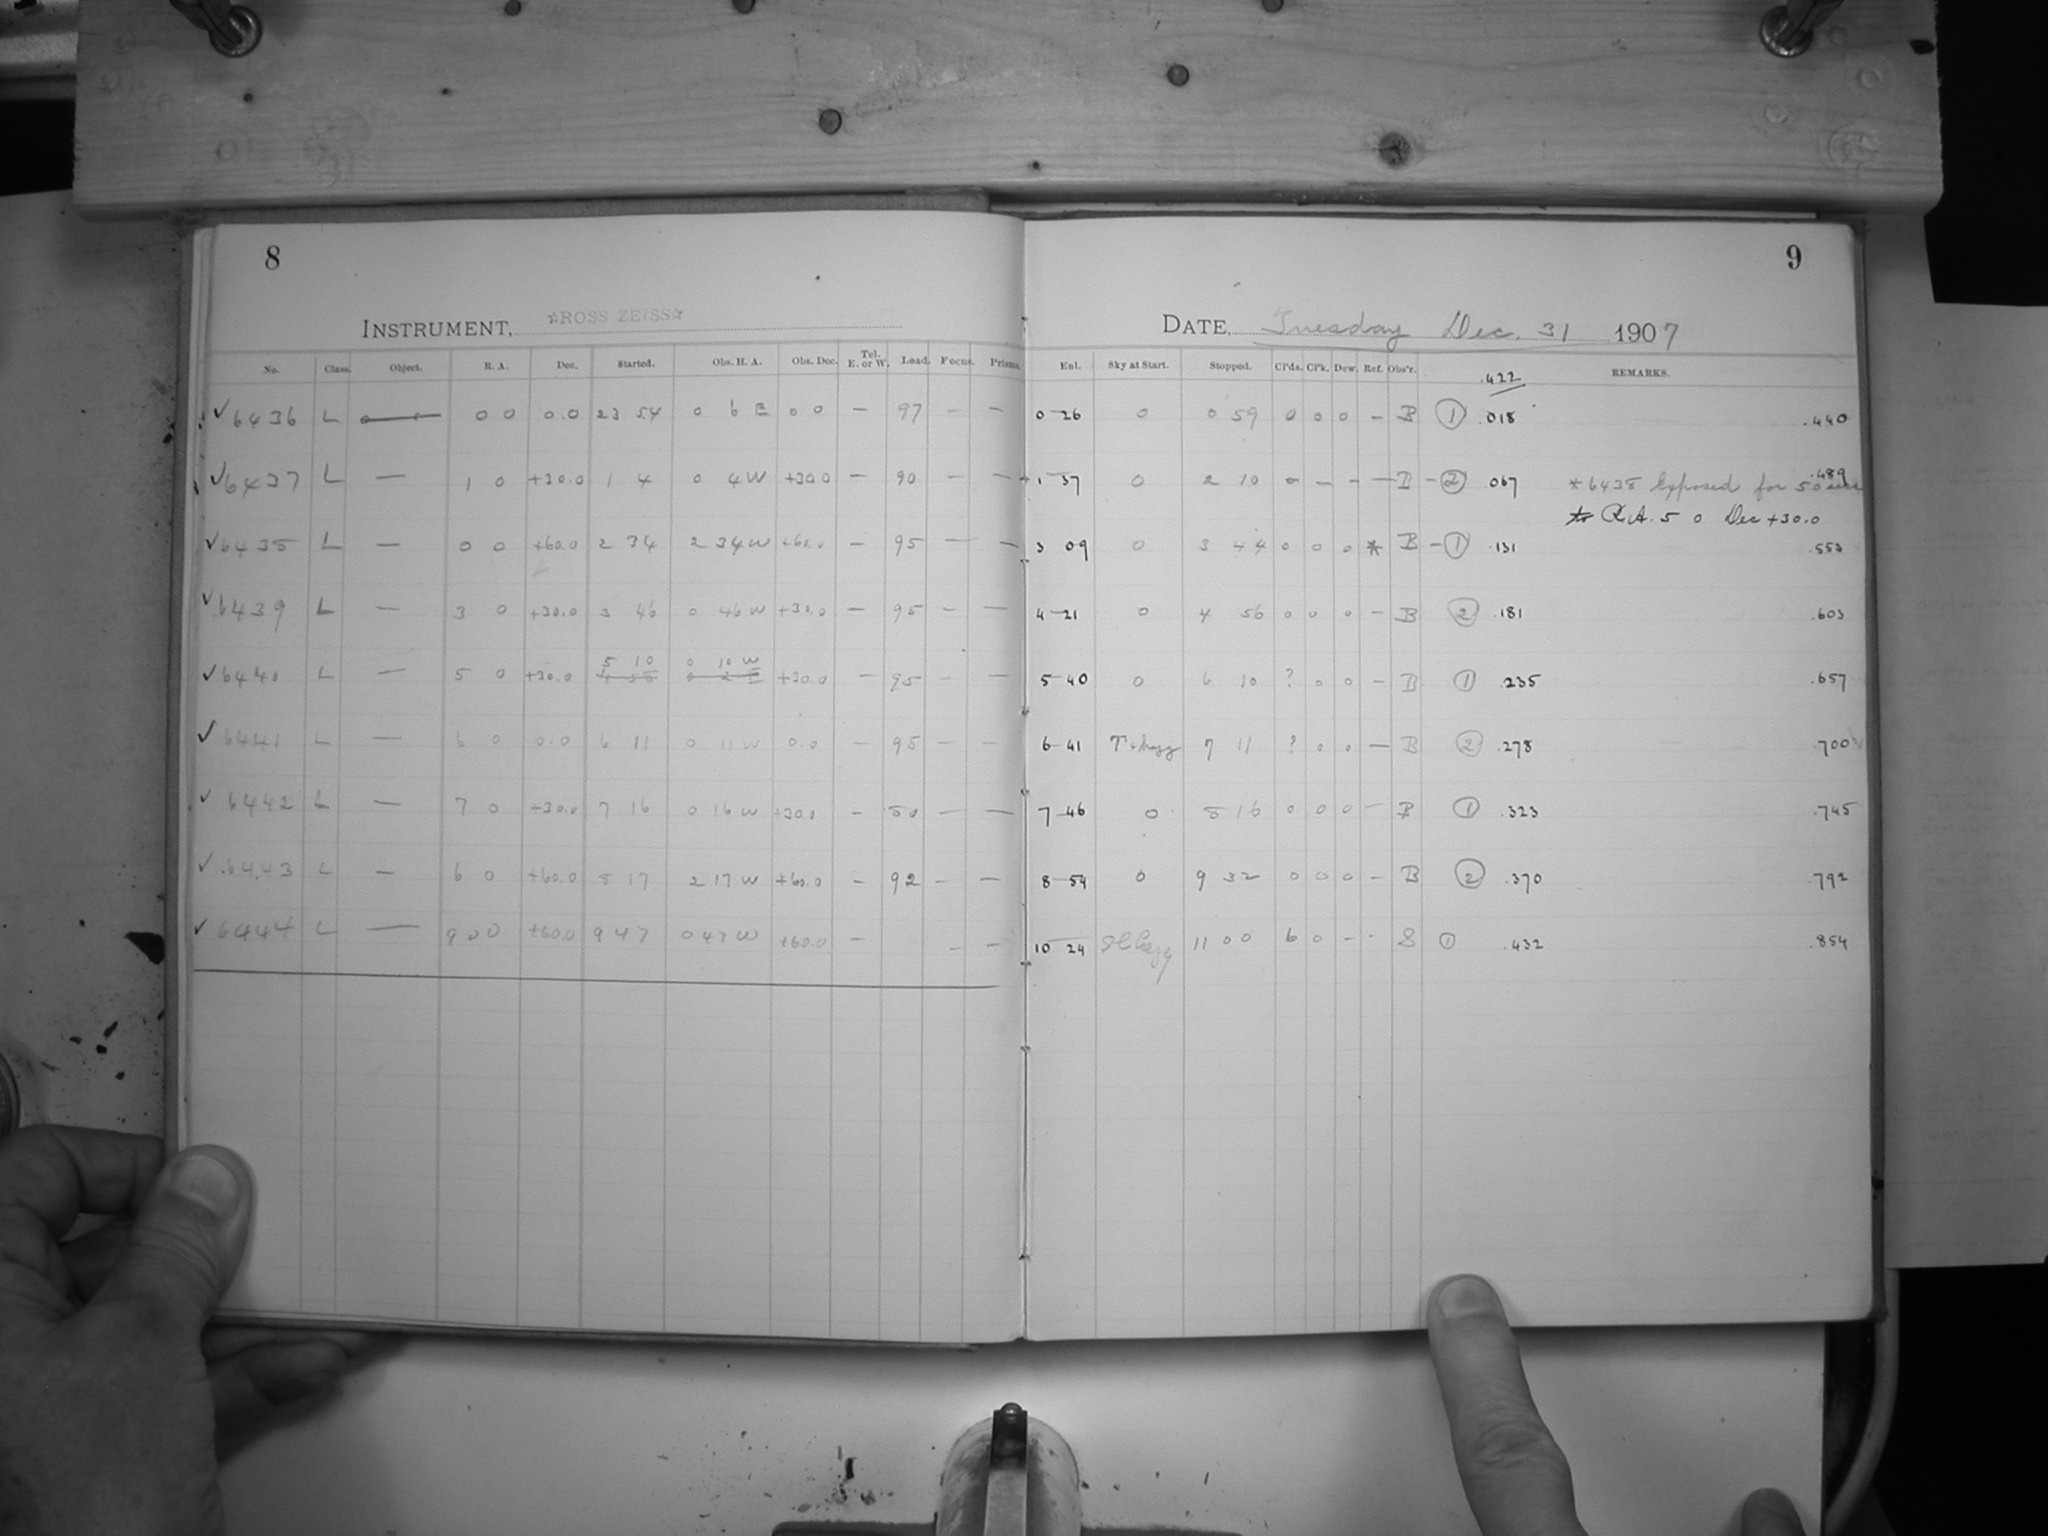 8
INSTRUMENT, ☆ROSS ZEISS☆
No. Class. Object. R. A. Dec. Started. Obs. H. A. Obs. Dec. Tel. E. or W. Load. Focus. Prisms.
✓6436 L 0 0 0.0 23 54 0 6 E 0 0 — 97 — —
✓6437 L — 1 0 +30.0 1 4 0 4W +30.0 — 90 — —
✓6438 L — 0 0 +60.0 2 34 2 34W +60.0 — 95 — —
✓6439 L — 3 0 +30.0 3 46 0 46W +30.0 — 95 — —
5 10 0 10 W
✓6440 L — 5 0 +30.0 4 58 0 2 E +30.0 — 95 — —
✓6441 L — 6 0 0.0 6 11 0 11 W 0.0 — 95 — —
✓6442 L — 7 0 +30.0 7 16 0 16 W +30.0 — 80 — —
✓6443 L — 6 0 +60.0 8 17 2 17 W +60.0 — 92 — —
✓6444 L — 9 00 +60.0 9 47 0 47 W +60.0 — — —
9
DATE, Tuesday Dec. 31 1907
Enl. Sky at Start. Stopped. Cl'ds. Cl'k. Dew. Ref. Obs'r. .422 REMARKS.
0 26 0 0 59 0 0 0 — B ① .018 .440
1 37 0 2 10 0 — — — B — ② .067 .489
*6438 Exposed for 50
R.A. 5 0 Dec +30.0
3 09 0 3 44 0 0 0 * B — ① .131 .553
4 21 0 4 56 0 0 0 — B ② .181 .603
5 40 0 6 10 ? 0 0 — B ① .235 .657
6 41 7 11 ? 0 0 — B ② .278 .700
7 46 0 8 16 0 0 0 — B ① .323 .745
8 54 0 9 32 0 0 0 — B ② .370 .792
10 24 11 00 6 0 - - S ① .432 .854